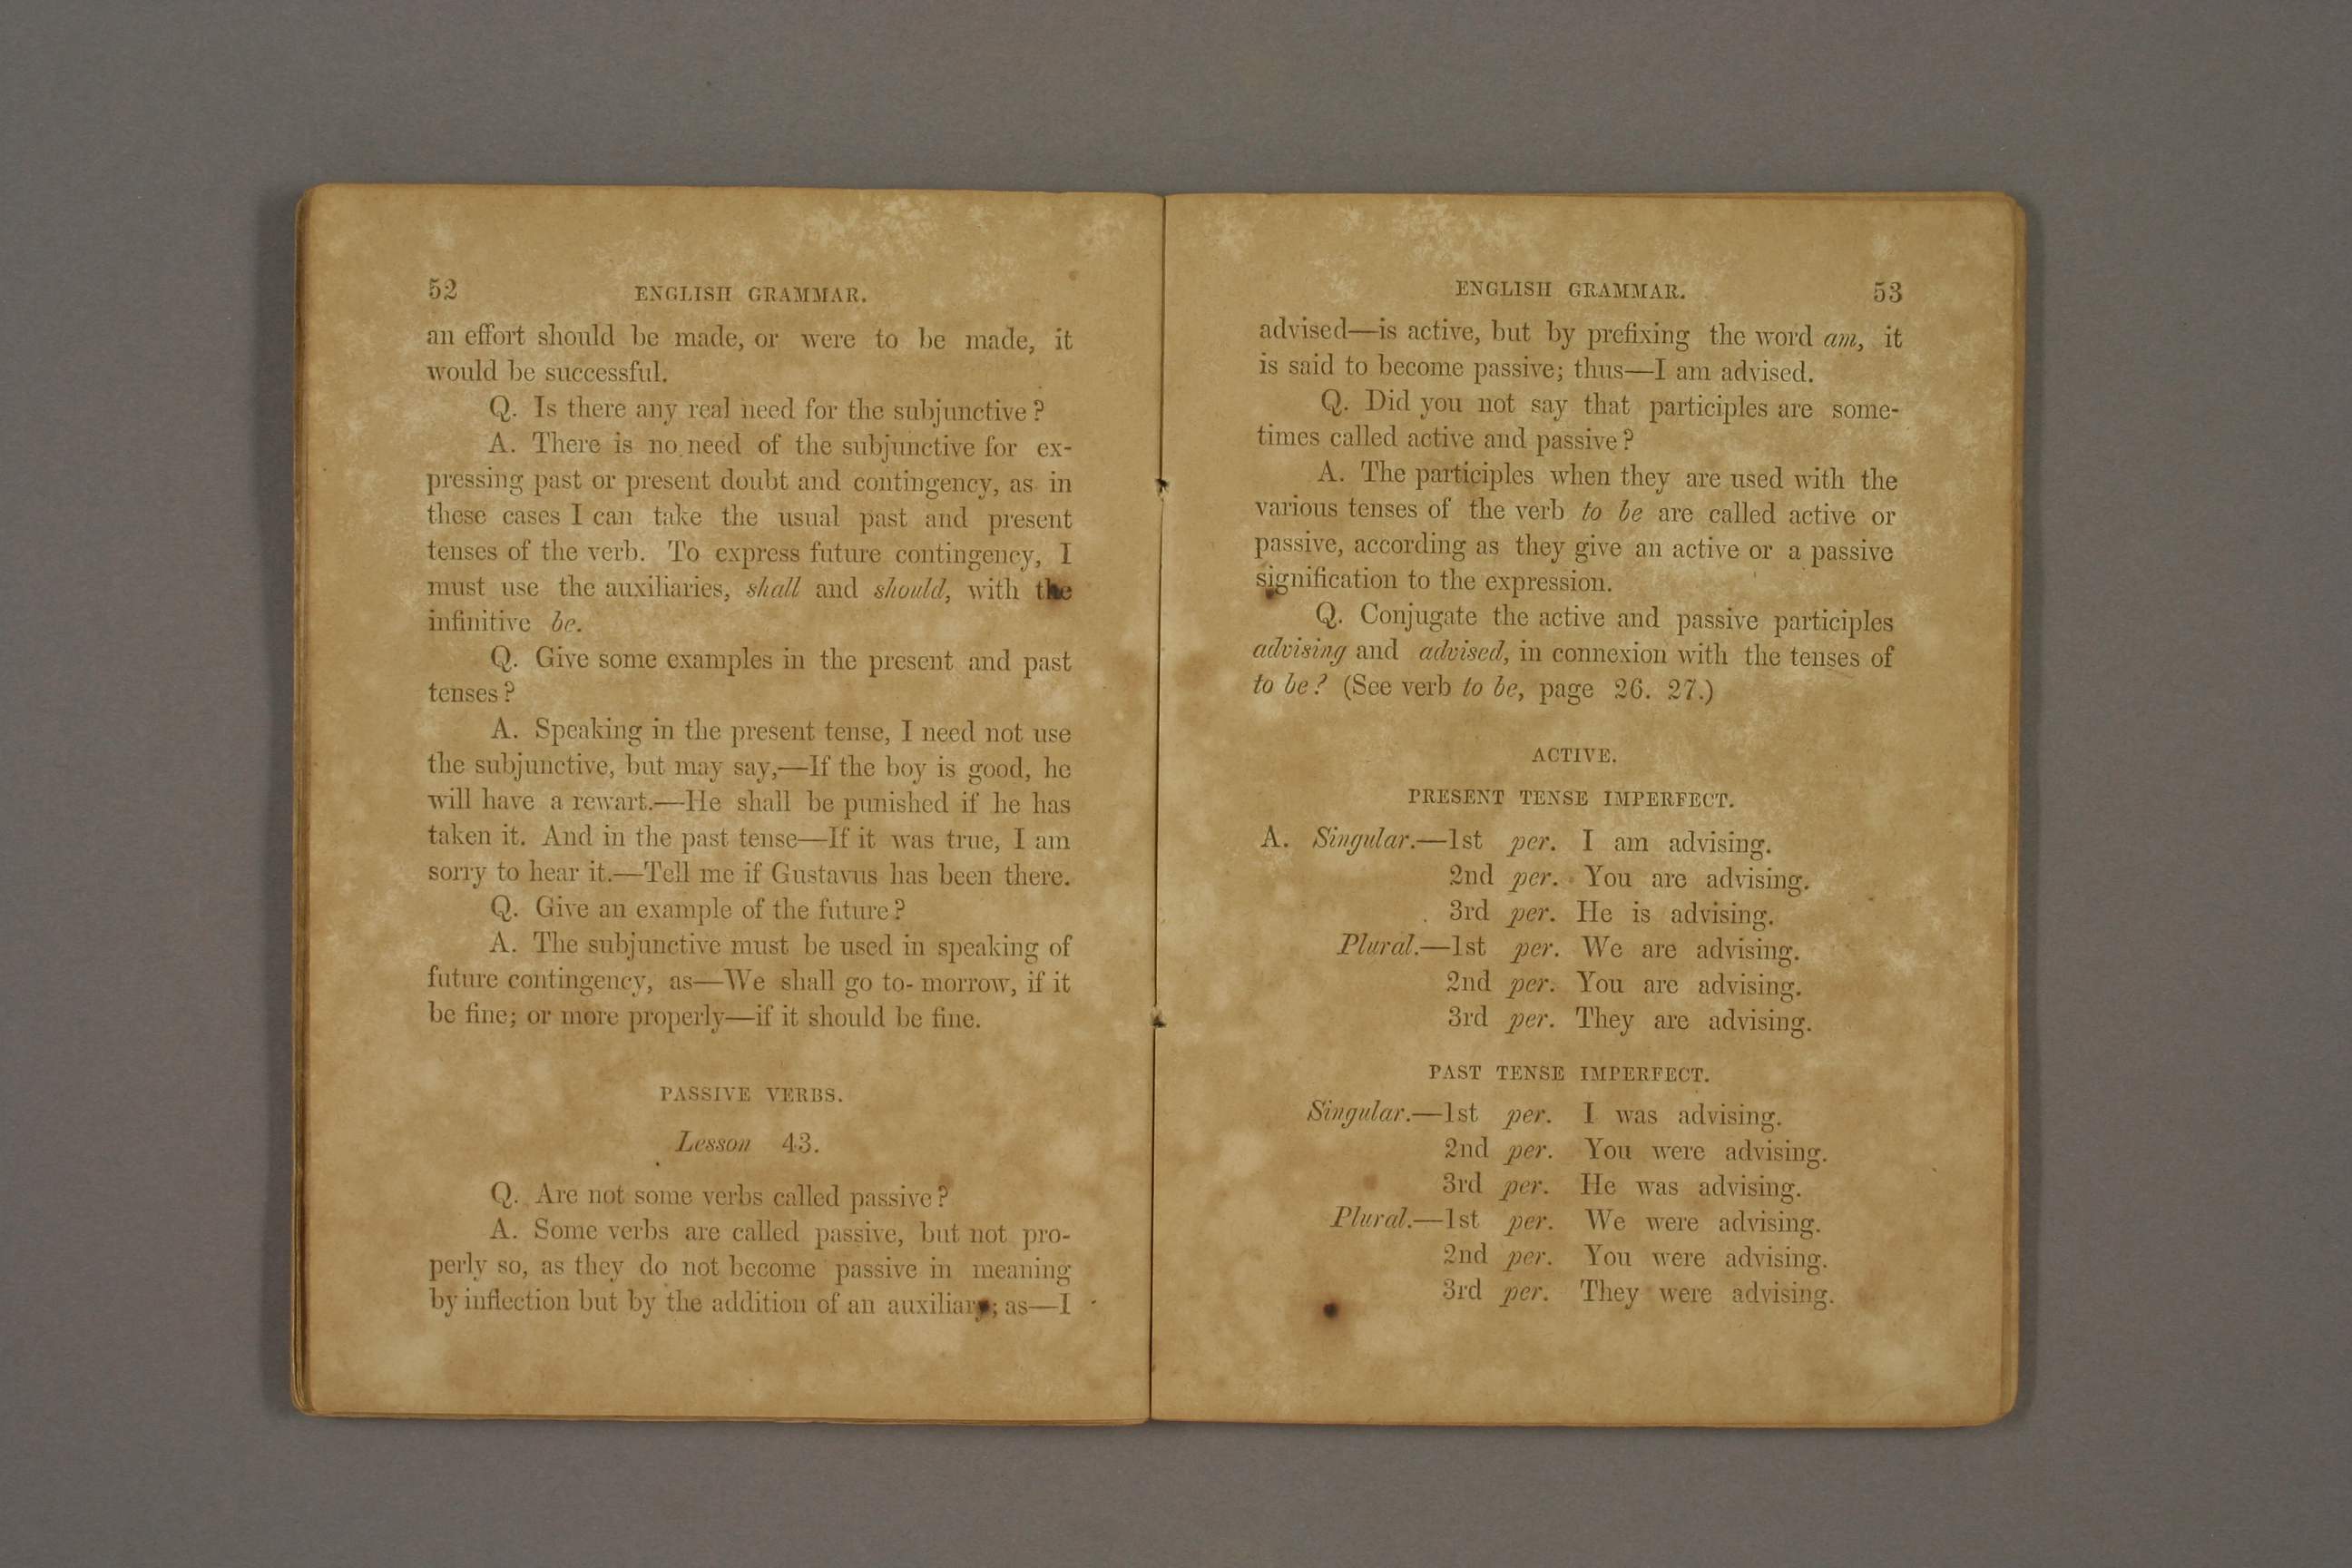 52 ENGLISH GRAMMAR.
an effort should be made, or were to be made, it
would be successful.
Q. Is there any real need for the subjunctive?
A. There is no need of the subjunctive for ex-
pressing past or present doubt and contingency, as in
these cases I can take the usual past and present
tenses of the verb. To express future contingency, I
must use the auxiliaries, shall and should, with the
infinitive be.
Q. Give some examples in the present and past
tenses?
A. Speaking in the present tense, I need not use
the subjunctive, but may say,—If the boy is good, he
will have a rewart.—He shall be punished if he has
taken it. And in the past tense—If it was true, I am
sorry to hear it.—Tell me if Gustavus has been there.
Q. Give an example of the future?
A. The subjunctive must be used in speaking of
future contingency, as—We shall go to- morrow, if it
be fine; or more properly—if it should be fine.
PASSIVE VERBS.
Lesson 43.
Q. Are not some verbs called passive?
A. Some verbs are called passive, but not pro-
perly so, as they do not become passive in meaning
by inflection but by the addition of an auxiliary; as—I
ENGLISH GRAMMAR. 53
advised—is active, but by prefixing the word am, it
is said to become passive; thus—I am advised.
Q. Did you not say that participles are some-
times called active and passive?
A. The participles when they are used with the
various tenses of the verb to be are called active or
passive, according as they give an active or a passive
signification to the expression.
Q. Conjugate the active and passive participles
advising and advised, in connexion with the tenses of
to be? (See verb to be, page 26. 27.)
ACTIVE.
PRESENT TENSE IMPERFECT.
A. Singular.—1st per. I am advising.
2nd per. You are advising.
3rd per. He is advising.
Plural.—1st per. We are advising.
2nd per. You are advising.
3rd per. They are advising.
PAST TENSE IMPERFECT.
Singular.—1st per. I was advising.
2nd per. You were advising.
3rd per. He was advising.
Plural.—1st per. We were advising.
2nd per. You were advising.
3rd per. They were advising.